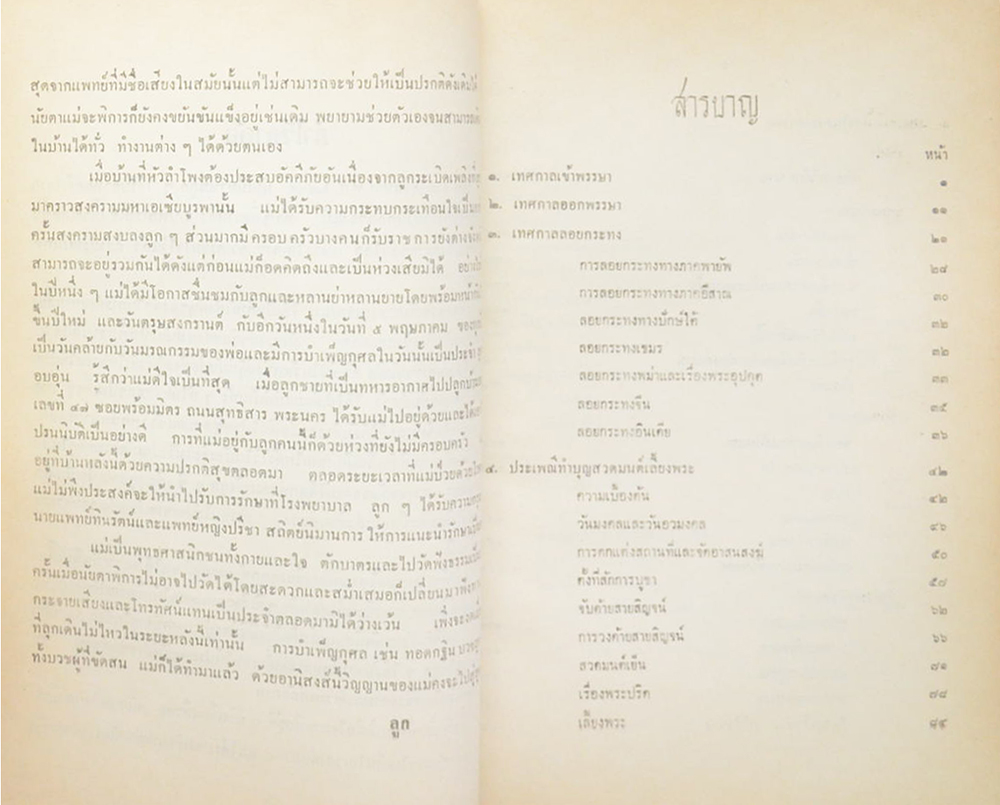 สุดจากแพทย์ที่มีชื่อเสียงในสมัยนั้นแต่ไม่สามารถจะช่วยให้เป็นปรกติดังเดิมได้
นัยตาแม่จะพิการก็ยังคงขยันขันแข็งอยู่เช่นเดิม พยายามช่วยตัวเองจนสามารถ
ในบ้านได้ทั่ว ทำงานต่าง ๆ ได้ด้วยตนเอง
เมื่อบ้านที่หัวลำโพงต้องประสบอัคคีภัยอันเนื่องจากลูกระเบิดเพลิง
มาคราวสงครามมหาเอเซียบูรพานั้น แม่ได้รับความกระทบกระเทือนใจเป็น
ครั้นสงครามสงบลงลูก ๆ ส่วนมากมีครอบครัวบางคนก็รับราชการยังต่าง
สามารถจะอยู่รวมกันได้ดังแต่ก่อนแม่ก็อดคิดถึงและเป็นห่วงเสียมิได้
ในปีหนึ่ง ๆ แม่ได้มีโอกาสชื่นชมกับลูกและหลานย่าหลานยายโดยพร้อมหน้า
ขึ้นปีใหม่ และวันตรุษสงกรานต์ กับอีกวันหนึ่งในวันที่ ๕ พฤษภาคม
เป็นวันคล้ายกับวันมรณกรรมของพ่อและมีการบำเพ็ญกุศลในวันนั้นเป็นประจำ
อบอุ่น รู้สึกว่าแม่ดีใจเป็นที่สุด เมื่อลูกชายที่เป็นทหารอากาศไปปลูก
เลขที่ ๔๗ ซอยพร้อมมิตร ถนนสุทธิสาร พระนคร ได้รับแม่ไปอยู่ด้วยและได้
ปรนนิบัติเป็นอย่างดี การที่แม่อยู่กับลูกคนนี้ก็ด้วยห่วงที่ยังไม่มีครอบครัว
อยู่ที่บ้านหลังนี้ด้วยความปรกติสุขตลอดมา ตลอดระยะเวลาที่แม่ป่วยด้วย
แม่ไม่พึงประสงค์จะให้นำไปรับการรักษาที่โรงพยาบาล ลูก ๆ ได้รับความ
นายแพทย์ทินรัตน์และแพทย์หญิงปรีชา สถิตย์นิมานการ ให้การแนะนำรักษา
แม่เป็นพุทธศาสนิกชนทั้งกายและใจ ตักบาตรและไปวัดฟังธรรม
ครั้นเมื่อนัยตาพิการไม่อาจไปวัดได้โดยสะดวกและสม่ำเสมอก็เปลี่ยนมาฟัง
กระจายเสียงและโทรทัศน์แทนเป็นประจำตลอดมามิได้ว่างเว้น เพิ่งจะ
ที่ลุกเดินไม่ไหวในระยะหลังนี้เท่านั้น การบำเพ็ญกุศล เช่น ทอดกฐิน
ทั้งบวชผู้ที่ขัดสน แม่ก็ได้ทำมาแล้ว ด้วยอานิสงส์นี้วิญญานของแม่คงจะ
ลูก
สารบาญ
หน้า
๑. เทศกาลเข้าพรรษา ๑
๒. เทศกาลออกพรรษา ๑๑
๓. เทศกาลลอยกระทง ๒๑
การลอยกระทงทางภาคพายัพ ๒๔
การลอยกระทงทางภาคอีสาณ ๓๐
ลอยกระทงทางปักษ์ใต้ ๓๒
ลอยกระทงเขมร ๓๒
ลอยกระทงพม่าและเรื่องพระอุปคุต ๓๓
ลอยกระทงจีน ๓๕
ลอยกระทงอินเดีย ๓๖
๔. ประเพณีทำบุญสวดมนต์เลี้ยงพระ ๔๒
ความเบื้องต้น ๔๒
วันมงคลและวันอวมงคล ๔๖
การตกแต่งสถานที่และจัดอาสนสงฆ์ ๕๐
ตั้งที่สักการบูชา ๕๗
จับด้ายสายสิญจน์ ๖๒
การวงด้ายสายสิญจน์ ๖๖
สวดมนต์เย็น ๗๑
เรื่องพระปริต ๗๔
เลี้ยงพระ